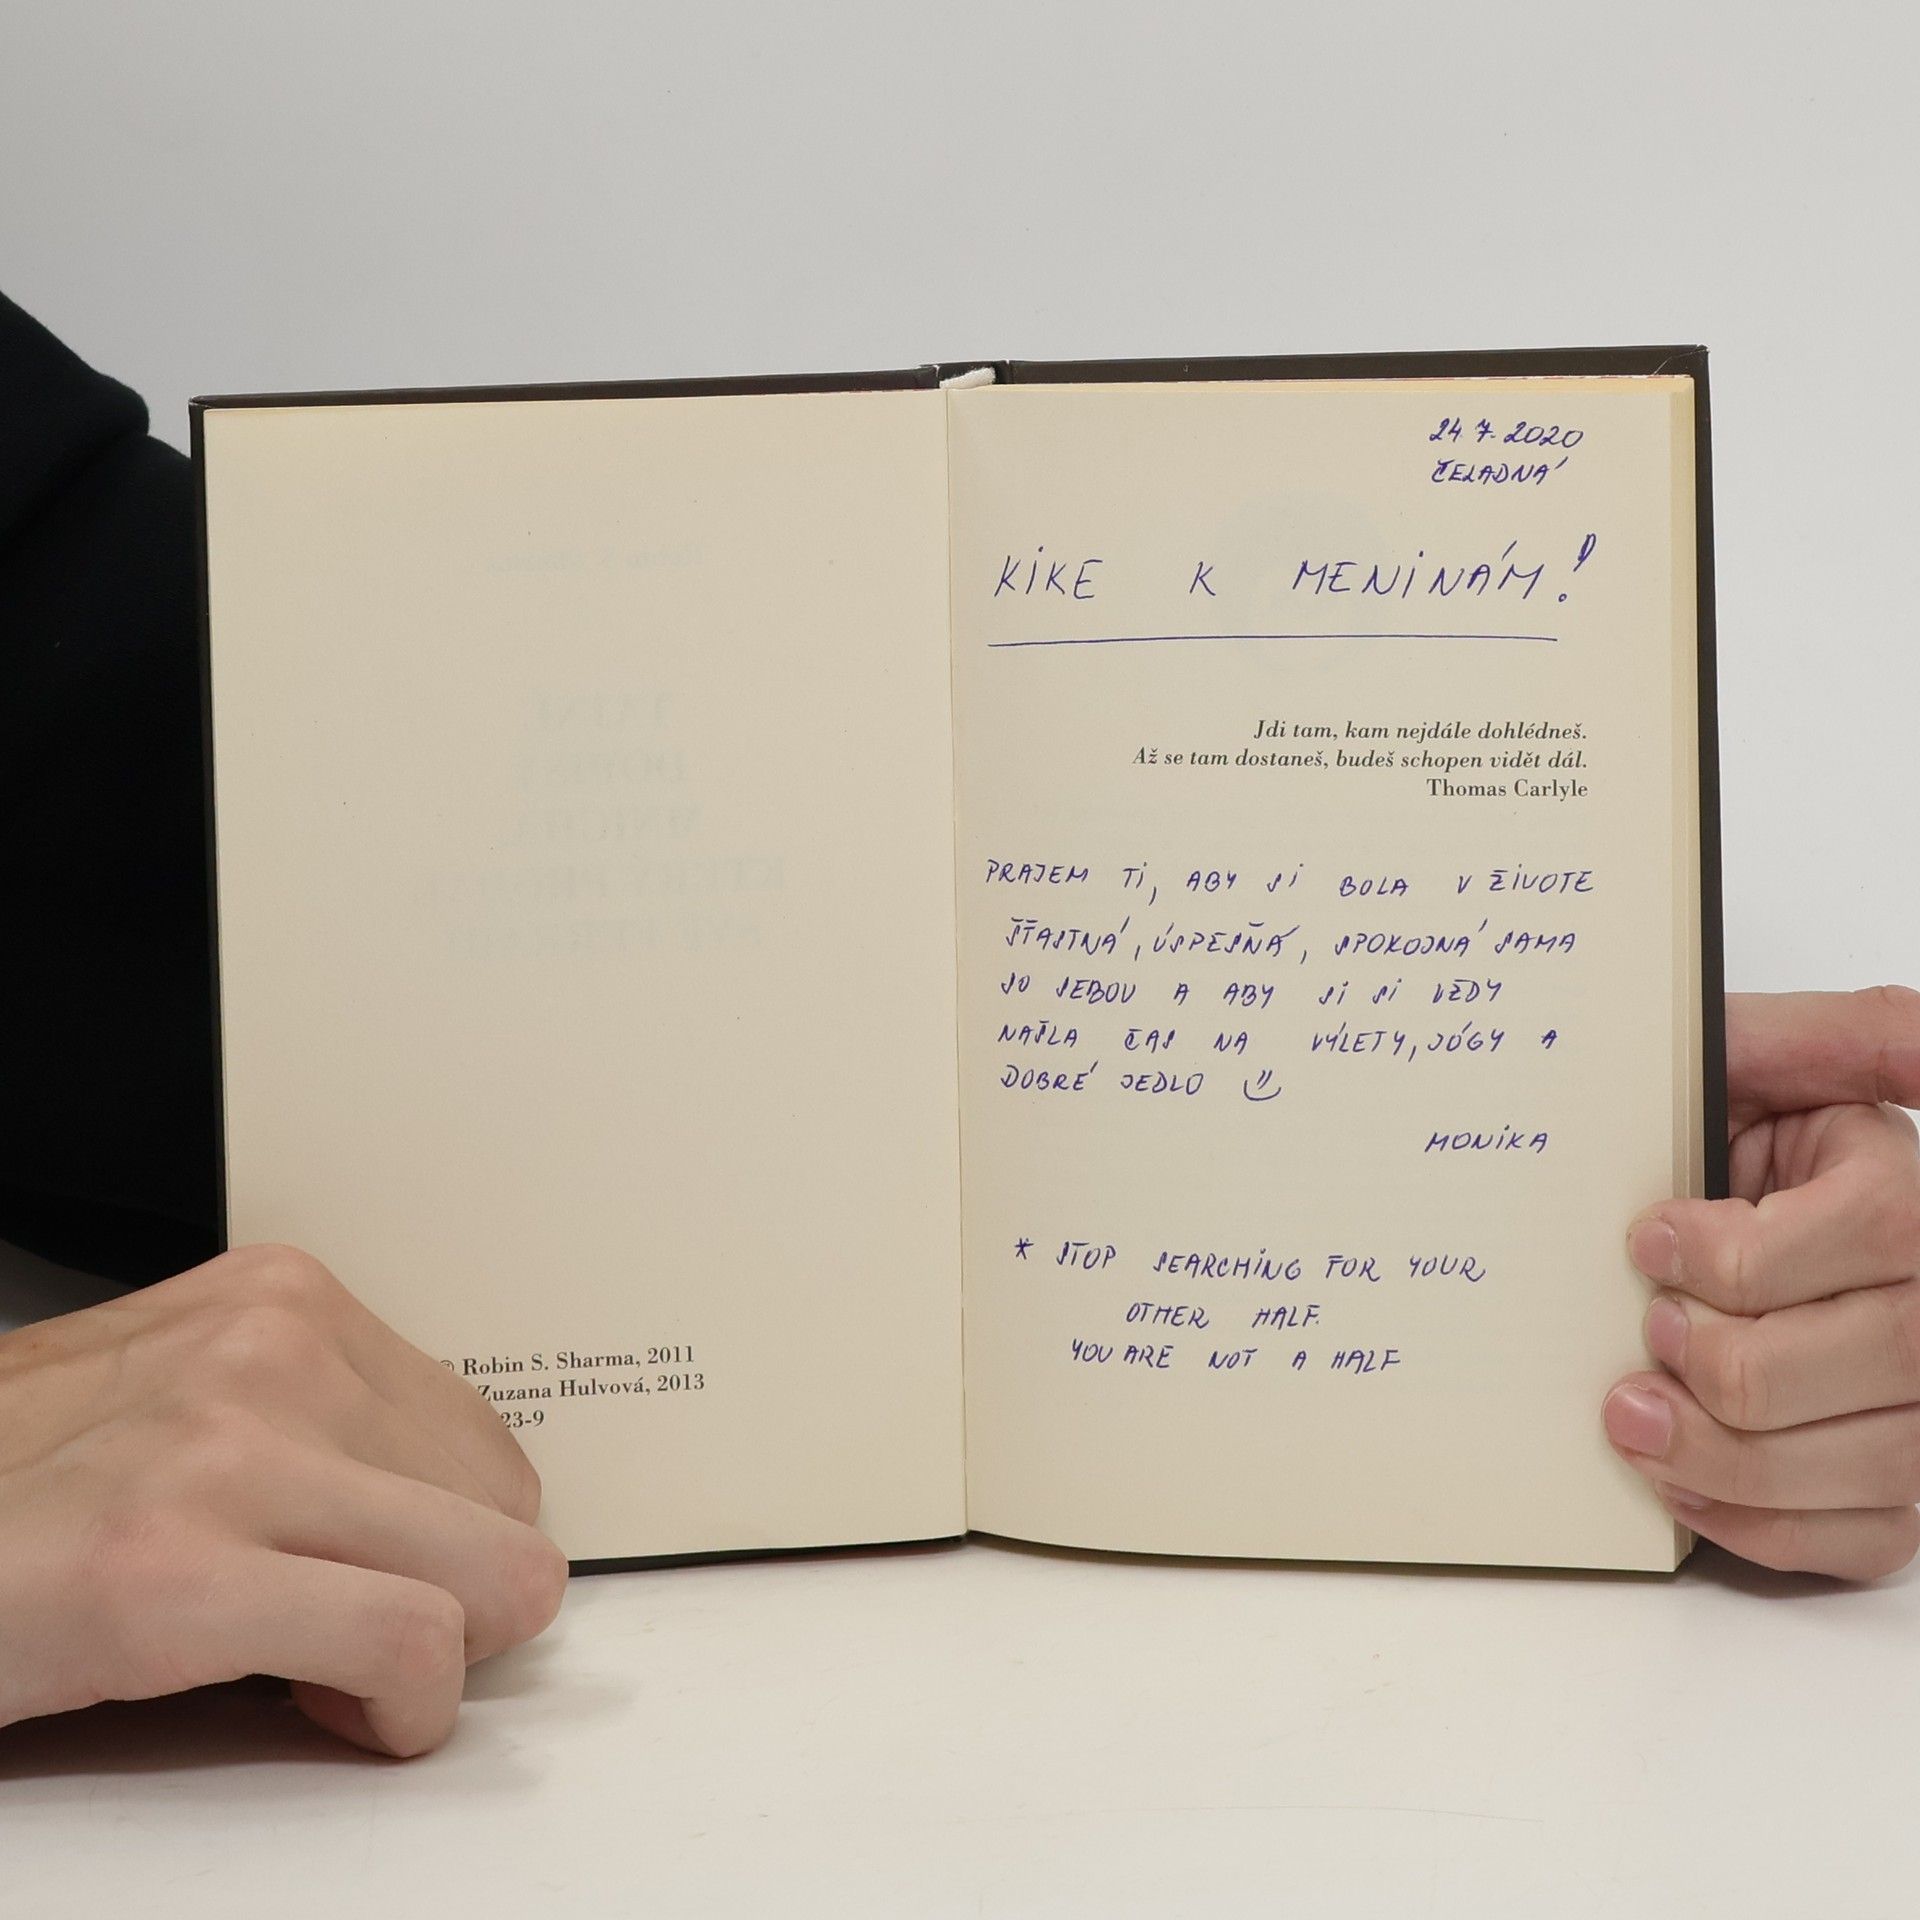 © Robin S. Sharma, 2011
Zuzana Hulvová, 2013
23-9
24.7.2020
ČELADNÁ
KIKE K MENINÁM!
Jdi tam, kam nejdále dohlédneš.
Až se tam dostaneš, budeš schopen vidět dál.
Thomas Carlyle
PRAJEM TI, ABY SI BOLA V ŽIVOTE
ŠŤASTNÁ, ÚSPEŠNÁ, SPOKOJNÁ SAMA
SO SEBOU A ABY SI SI VŽDY
NAŠLA ČAS NA VÝLETY, JÓGY A
DOBRÉ JEDLO
MONIKA
* STOP SEARCHING FOR YOUR
OTHER HALF.
YOU ARE NOT A HALF